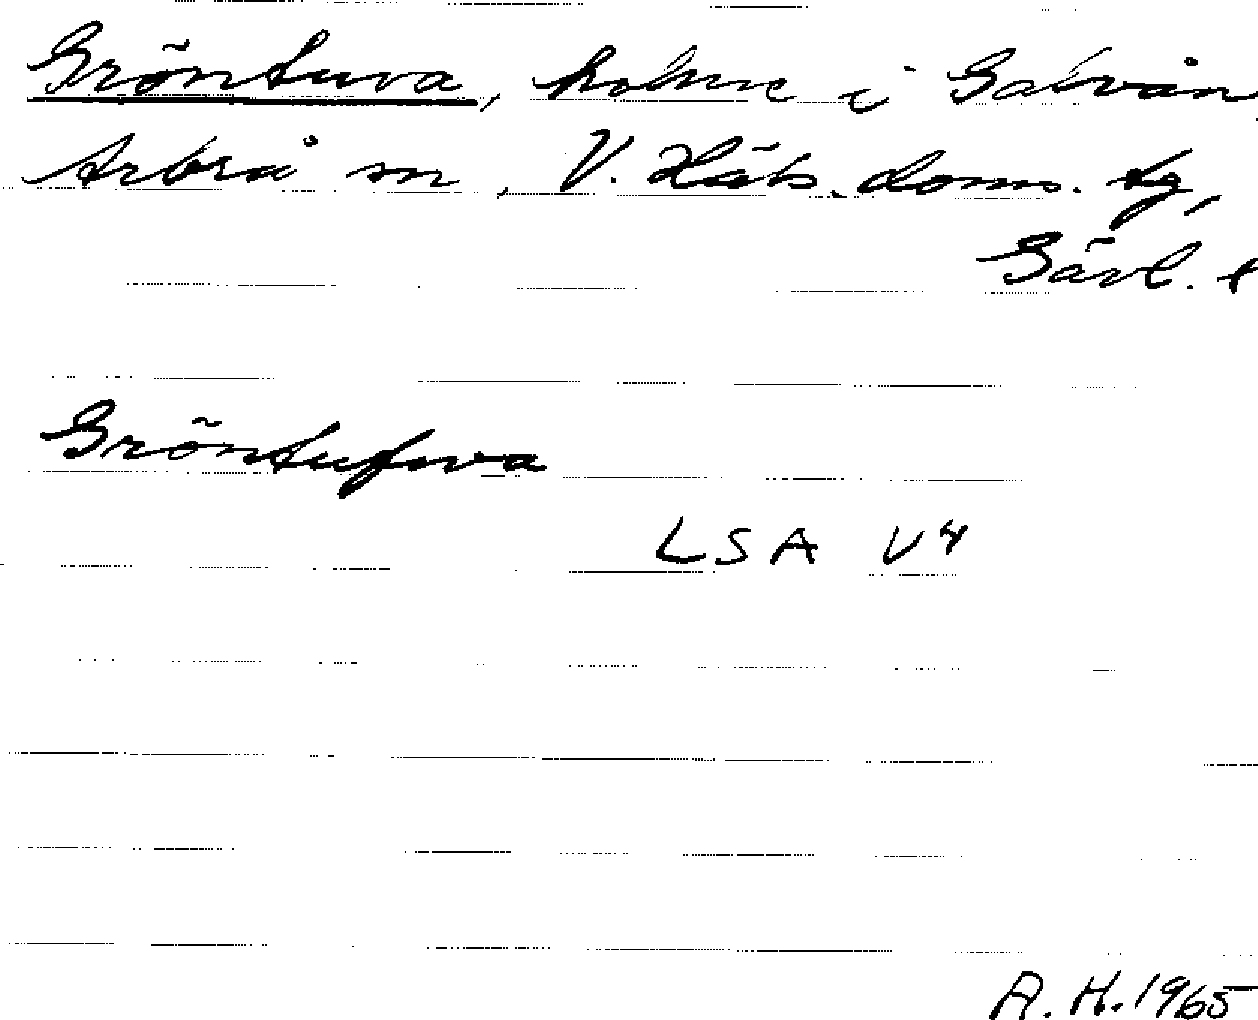 Gröntuva, holme i Galvån,
Arbrå sn, V. Häls. doms. tg,
Gävl. l
Gröntufwa
LSA V4
A. H. 1965